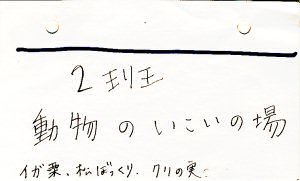 2班
動物のいこいの場
イガ栗、松ぼっくり、クリの実